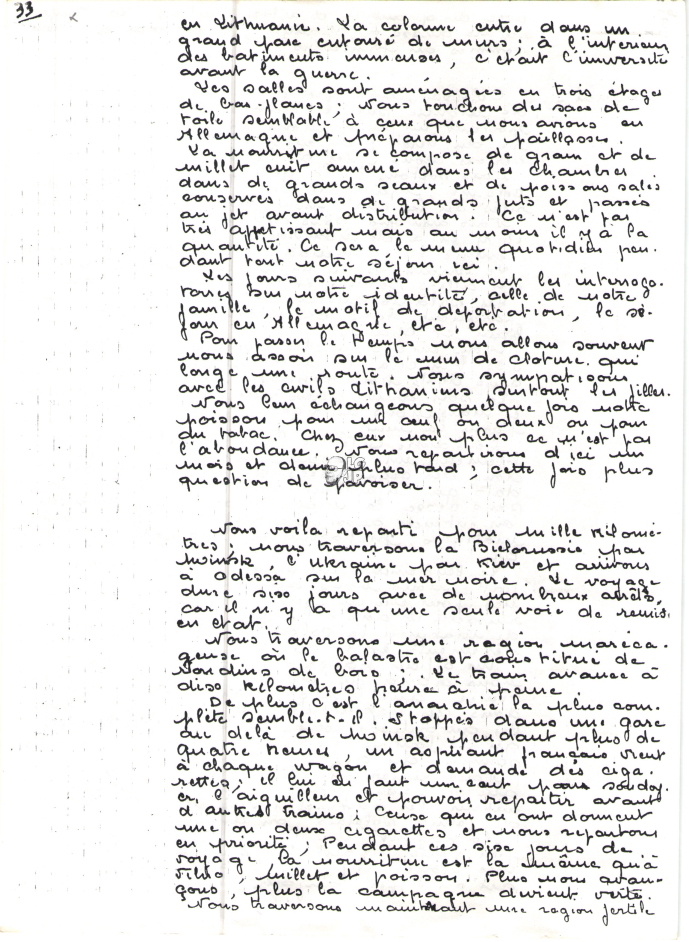 33
en Lithuanie. La colonne entre dans un
grand parc entouré de murs ; à l'interieur
des batiments immenses, c'était l'université
avant la guerre.
Les salles sont aménagées en trois étages
de bas-flancs ; Nous touchons des sacs de
toile semblable à ceux que nous avions en
Allemagne et préparons les paillasses.
La nourriture se compose de grain et de
millet cuit amené dans les chambres
dans de grands seaux et de poissons salés
conservés dans de grands futs et passés
au jet avant distribution. Ce n'est pas
très appétissant mais au moins il y a la
quantité. Ce sera le menu quotidien pen-
dant tout notre séjour ici.
Les jours suivants viennent les interroga-
toires sur notre identité, celle de notre
famille, le motif de déportation, le sé-
jour en Allemagne, etc, etc.
Pour passer le temps nous allons souvent
nous assoir sur le mur de cloture qui
longe une route. Nous sympatisons
avec les civils Lithaniens surtout les filles.
Nous leur échangeons quelque fois notre
poisson pour un œuf ou deux ou pour
du tabac. Chez eux non plus ce n'est pas
l'abondance. Nous repartirons d'ici un
mois et demi plus tard ; cette fois plus
question de pavoiser.
Nous voila reparti pour mille kilomè-
tres ; nous traversons la Bielorussie par
Minsk, l'Ukraine par Kiev et arrivons
à Odessa sur la mer noire. Le voyage
dure six jours avec de nombreux arrêts,
car il n'y a qu'une seule voie de remis
en état.
Nous traversons une region maréca-
geuse où le balastre est constitué de
rondins de bois ; Le train avance à
dix kilomètres heure à peine.
De plus c'est l'anarchie la plus com-
plète semble-t-il. Stoppés dans une gare
au delà de Minsk pendant plus de
quatre heures, un aspirant français vient
à chaque wagon et demande des ciga-
rettes ; il lui en faut un cent pour soudoy-
er l'aiguilleur et pouvoir repartir avant
d'autres trains ; Ceux qui en ont donnent
une ou deux cigarettes et nous repartons
en priorité ; Pendant ces six jours de
voyage la nourriture est la même qu'à
Vilno, millet et poisson. Plus nous avan-
çons, plus la campagne devient verte.
Nous traversons maintenant une region fertile